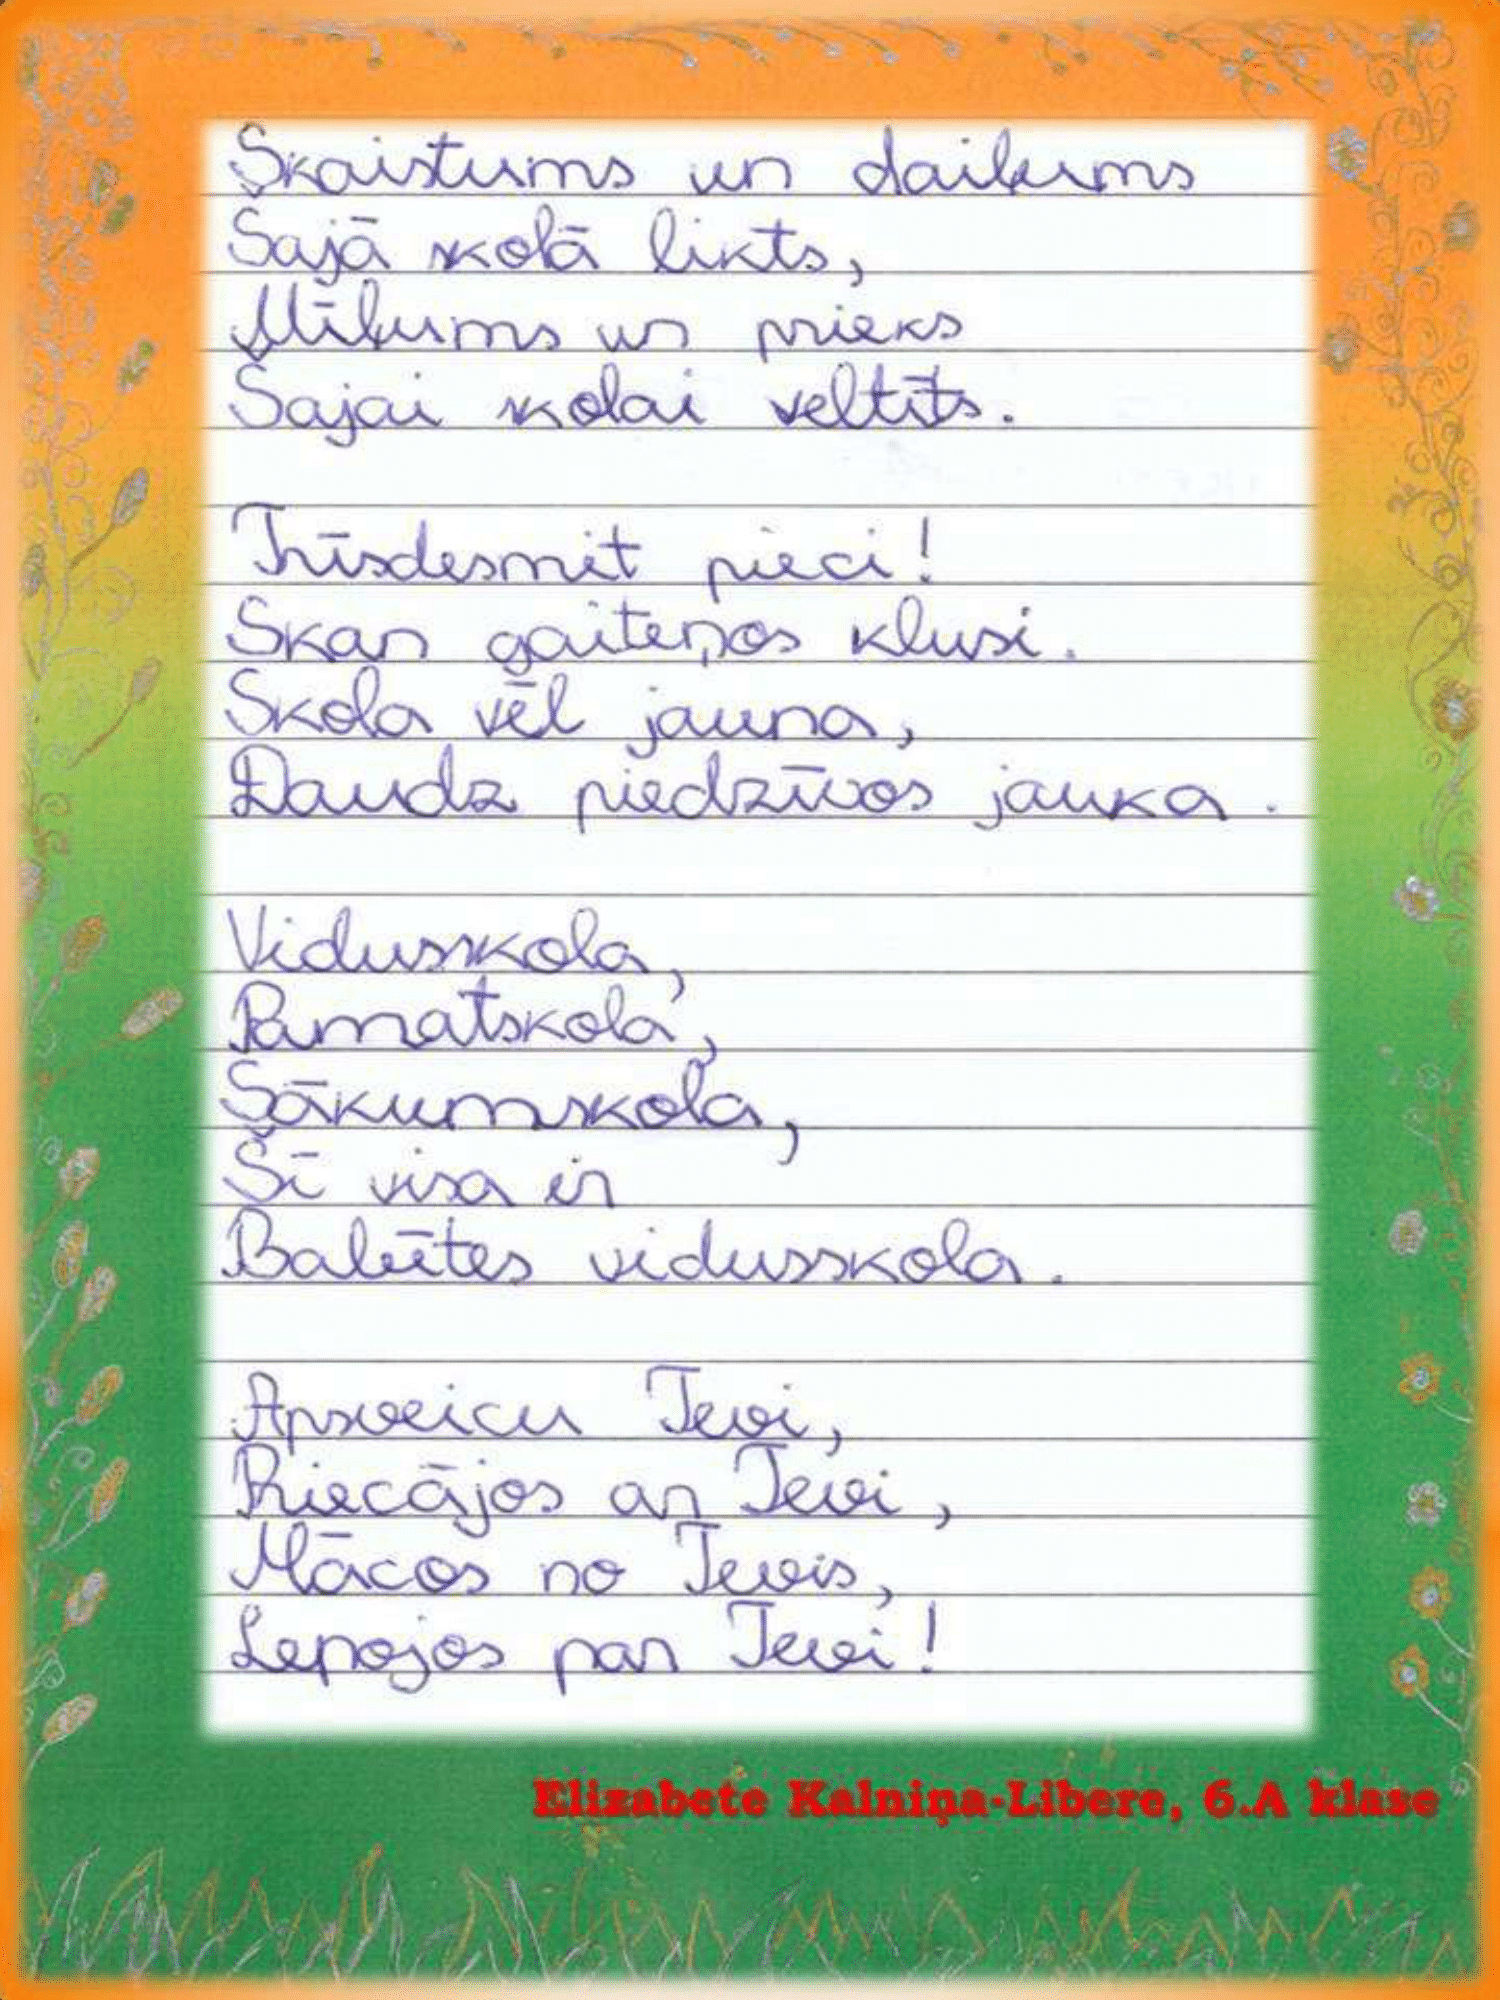 Skaistums un dailums
Šajā skolā likts,
Mīļums un prieks
Šajai skolai veltīts.
Trīsdesmit pieci!
Skan gaiteņos klusi.
Skola vēl jauna,
Daudz piedzīvos jauka.
Vidusskola,
Pamatskola,
Sākumskola,
Šī visa ir
Babītes vidusskola.
Apsveicu Tevi,
Priecājos ar Tevi,
Mācos no Tevis,
Lepojos par Tevi!
Elizabete Kalniņa-Libere, 6.A klase